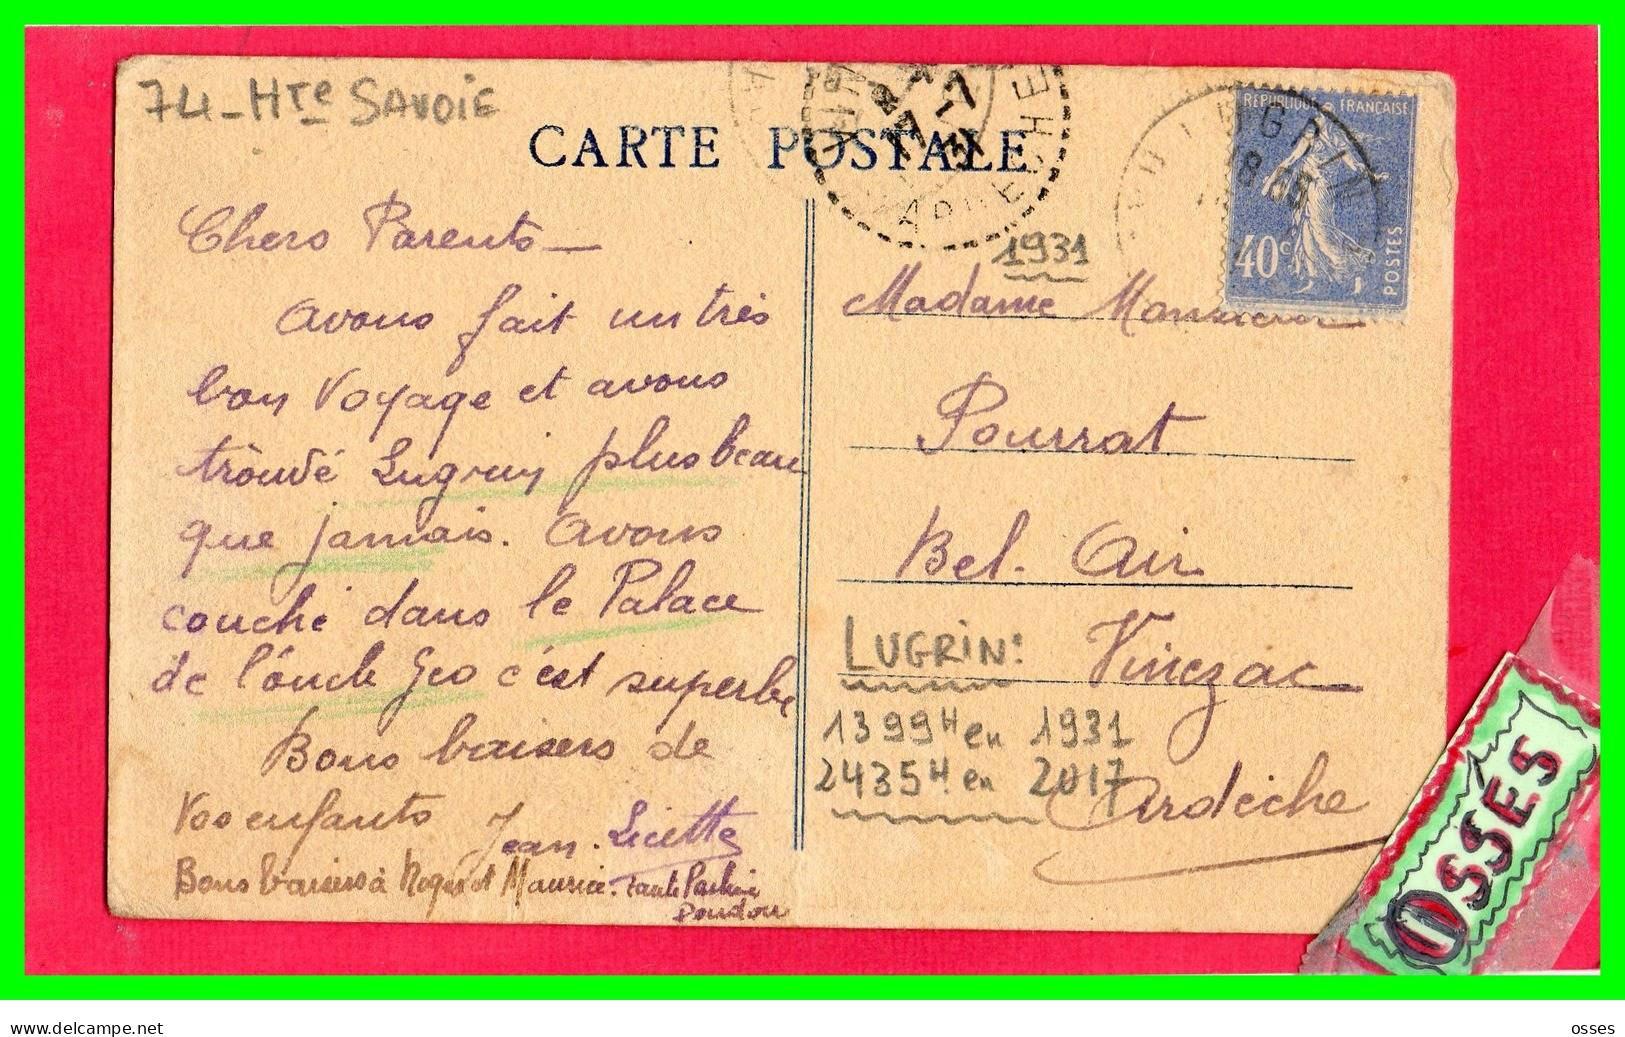 74-Hte SAVOIE
CARTE POSTALE
17-7
31
ARDECHE
LUGRIN
18 05
REPUBLIQUE FRANÇAISE
40c
POSTES
1931
Chers Parents -
Avons fait un très
bon voyage et avons
trouvé Lugrin plus beau
que jamais. Avons
couché dans le Palace
de l'oncle Geo c'est superbe
Bons baisers de
Vos enfants Jean. Licette
Bons baisers à Roger et Maurice. tante
Doudou
Madame Monsieur
Pourrat
Bel. Air
Vinezac
Ardèche
LUGRIN:
1399H en 1931
2435H en 2017
OSSES
www.delcampe.net
osses